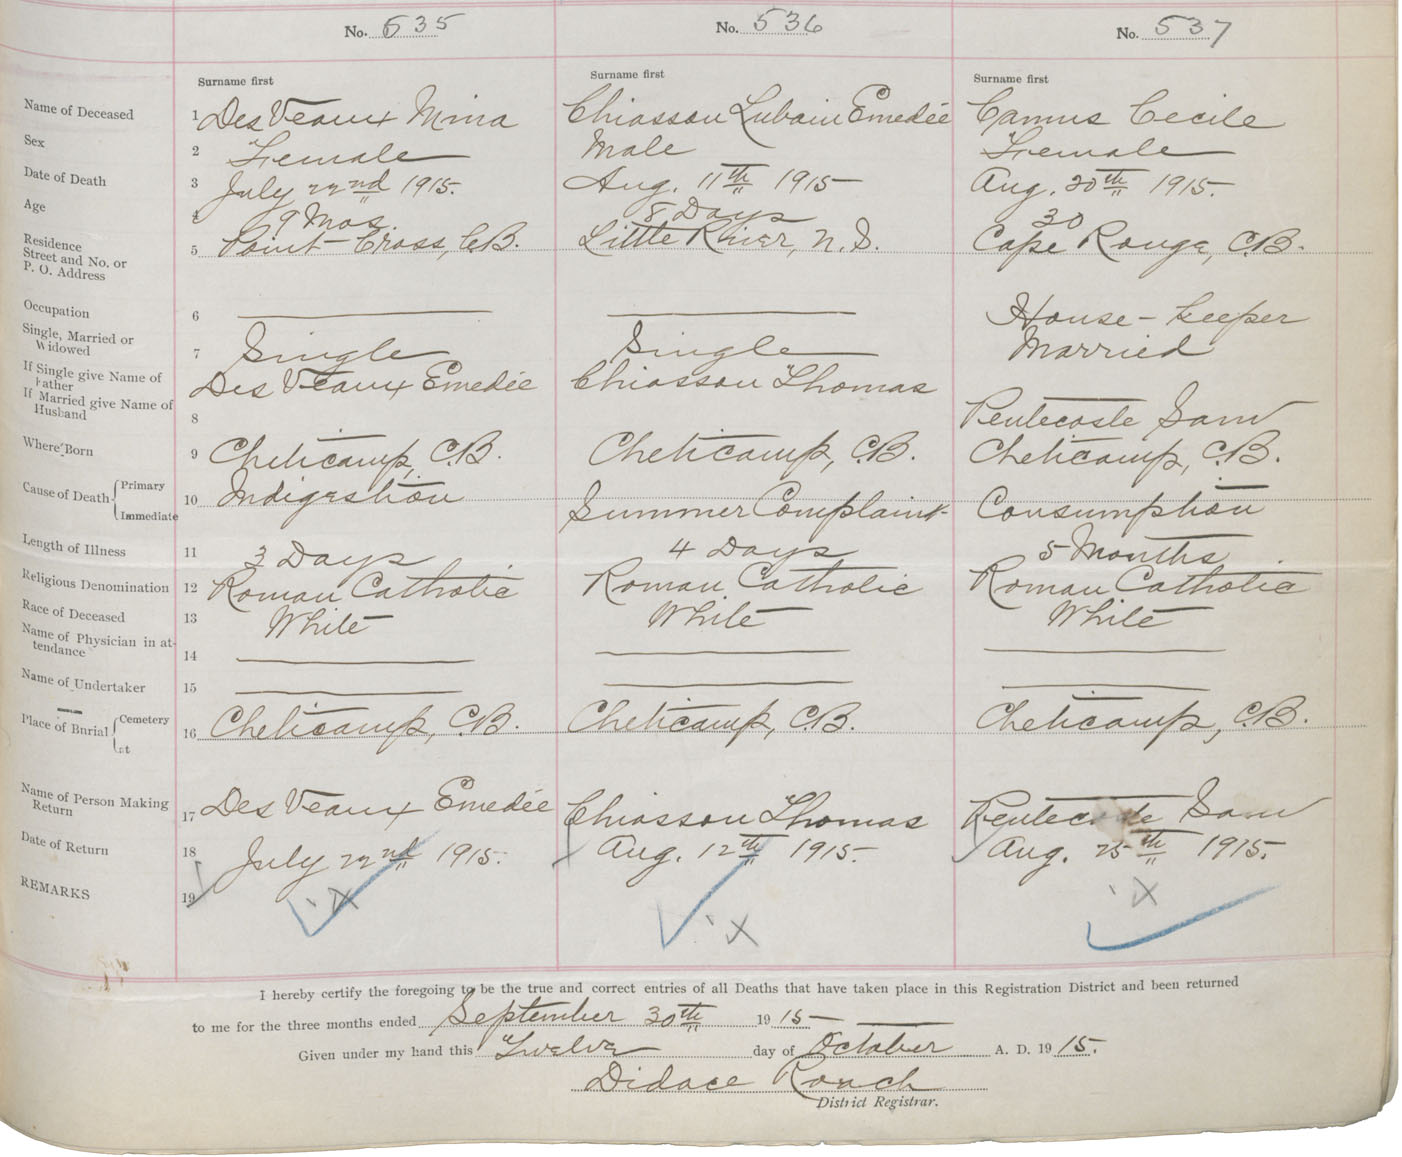 No. 535 No. 536 No. 537
Surname first Surname first Surname first
Name of Deceased 1 DesVeaux Mina Chiasson Lubain Emedée Camus Cecile
Sex 2 Female Male Female
Date of Death 3 July 22nd 1915. Aug. 11th 1915 Aug. 20th 1915.
Age 4 9 Mos. 8 Days 30
Residence
Street and No. or
P. O. Address
5 Point Cross, C.B. Little River, N.S. Cape Rouge, C.B.
Occupation 6 House-keeper
Single, Married or
Widowed
7 Single Single Married
If Single give Name of
Father
DesVeaux Emedée Chiasson Thomas
If Married give Name of
Husband
8 Pentecoste Sam
Where Born 9 Cheticamp, C.B. Cheticamp, C.B. Cheticamp, C.B.
Cause of Death Primary
Immediate
10 Indigestion Summer Complaint Consumption
Length of Illness 11 3 Days 4 Days 5 Months
Religious Denomination 12 Roman Catholic Roman Catholic Roman Catholic
Race of Deceased 13 White White White
Name of Physician in at-
tendance
14
Name of Undertaker 15
Place of Burial Cemetery
at
16 Cheticamp, C.B. Cheticamp, C.B. Cheticamp, C.B.
Name of Person Making
Return
17 DesVeaux Emedée Chiasson Thomas Pentecoste Sam
Date of Return 18 July 22nd 1915. Aug. 12th 1915. Aug. 25th 1915.
REMARKS 19 X X X
I hereby certify the foregoing to be the true and correct entries of all Deaths that have taken place in this Registration District and been returned
to me for the three months ended September 30th 1915
Given under my hand this Twelve day of October A. D. 1915.
Didace Roach
District Registrar.